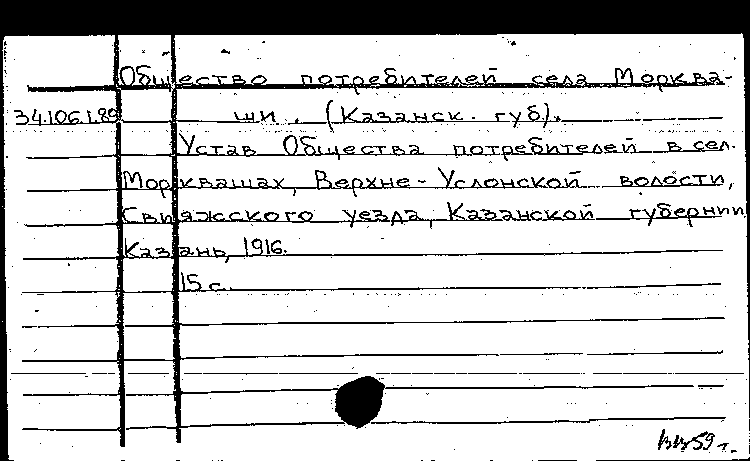 Общество потребителей села Морква-
34.106.1.89 ши. (Казанск. губ).
Устав Общества потребителей в сел.
Моркващах, Верхне-Услонской волости,
Свияжского уезда, Казанской губернии
Казань, 1916.
15 с.
59 г.